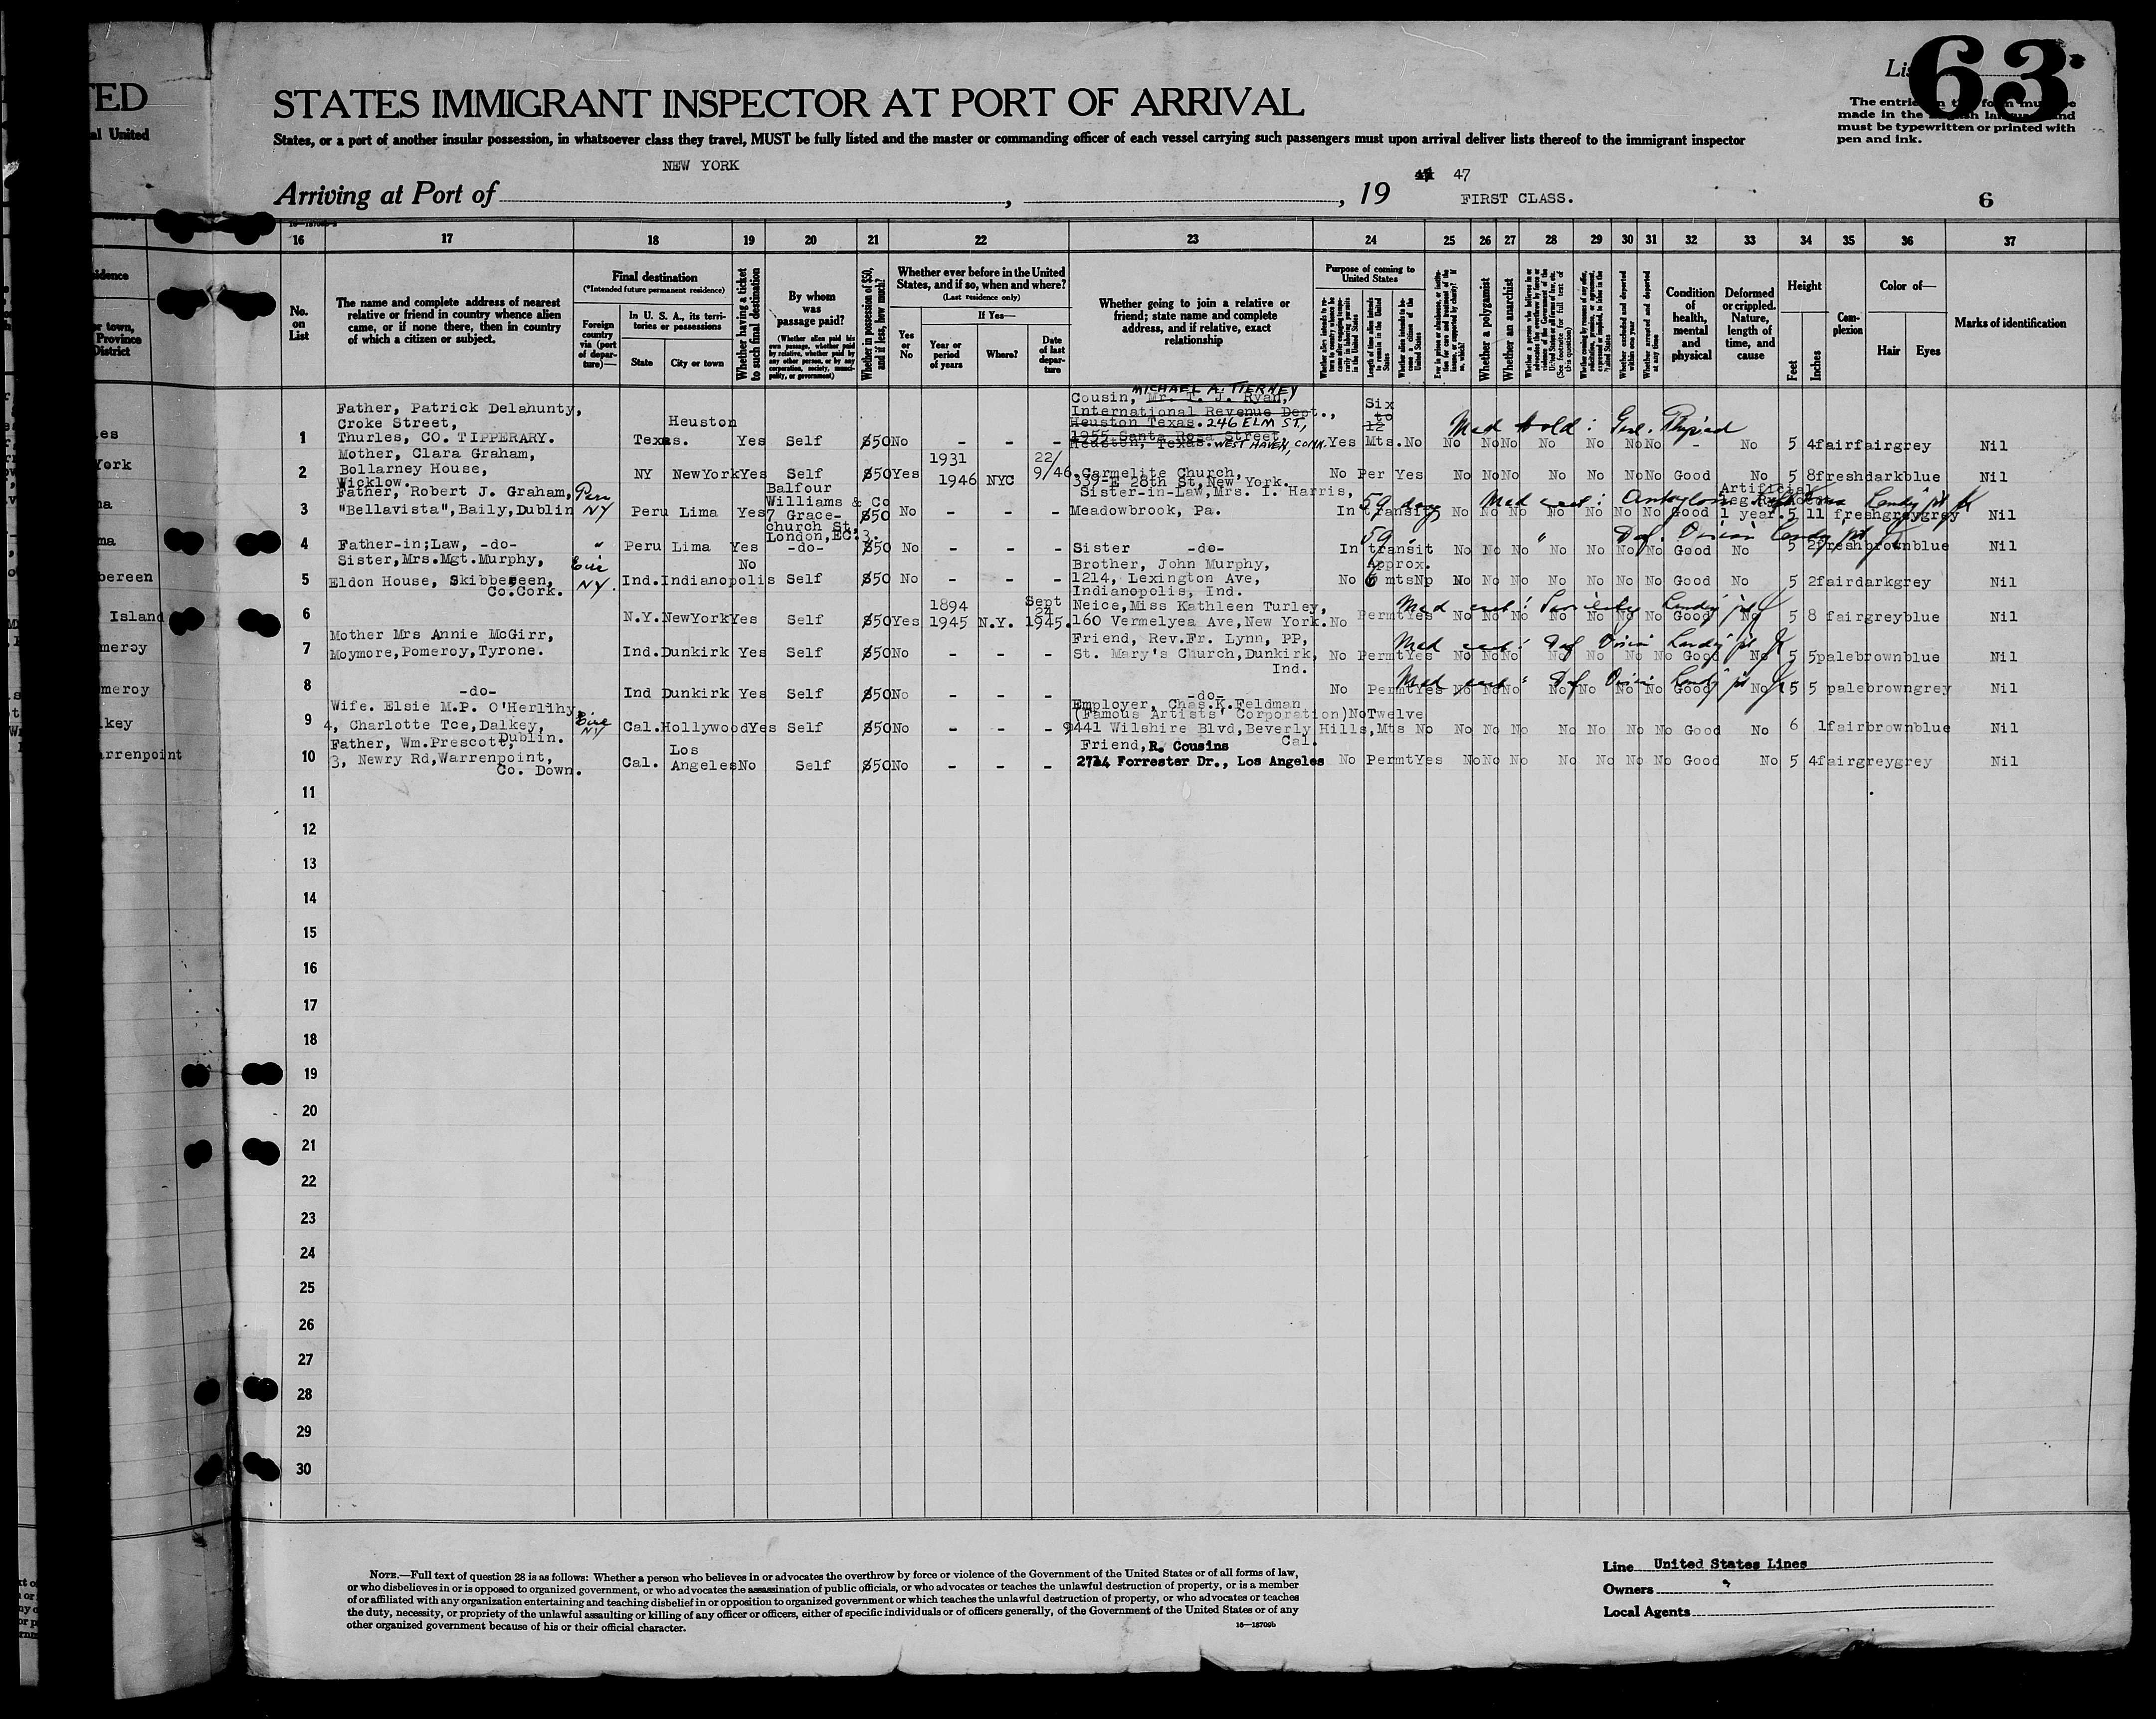 TED
al United
STATES IMMIGRANT INSPECTOR AT PORT OF ARRIVAL
List
63
The entries on this form must be
made in the English language and
must be typewritten or printed with
pen and ink.
States, or a port of another insular possession, in whatsoever class they travel, MUST be fully listed and the master or commanding officer of each vessel carrying such passengers must upon arrival deliver lists thereof to the immigrant inspector
NEW YORK
Arriving at Port of , , 19 47
FIRST CLASS.
6
16 17 18 19 20 21 22 23 24 25 26 27 28 29 30 31 32 33 34 35 36 37
No. on List
The name and complete address of nearest relative or friend in country whence alien came, or if none there, then in country of which a citizen or subject.
Final destination
(*Intended future permanent residence)
Foreign country via (port of departure)—
In U. S. A., its territories or possessions
State
City or town
Whether having a ticket to such final destination
By whom was passage paid?
(Whether alien paid his own passage, whether paid by relative, whether paid by any other person, or by any corporation, society, municipality, or government)
Whether in possession of $50, and if less, how much?
Whether ever before in the United States, and if so, when and where?
(Last residence only)
Yes or No
If Yes—
Year or period of years
Where?
Date of last departure
Whether going to join a relative or friend; state name and complete address, and if relative, exact relationship
Purpose of coming to United States
Length of time alien intends to remain in the United States
Whether alien intends to become a citizen of the United States
Whether a polygamist
Whether an anarchist
Whether arrested and deported at any time
Condition of health, mental and physical
Deformed or crippled. Nature, length of time, and cause
Height
Feet
Inches
Complexion
Color of—
Hair
Eyes
Marks of identification
1 Father, Patrick Delahunty, Croke Street, Thurles, CO. TIPPERARY. Texas. Heuston Yes Self $50 No - - - Cousin, Mr. T. J. Ryan, MICHAEL A. TIERNEY International Revenue Dept., Heuston Texas. 246 ELM ST., 1955 Santa Rosa Street, Heuston, Texas. WEST HAVEN, CONN. Yes Six to 12 Mts. No No No No No No No No - No 5 4 fair fair grey Nil
Med Hold:
2 Mother, Clara Graham, Bollarney House, Wicklow. NY New York Yes Self $50 Yes 1931 1946 NYC 22/9/46 Carmelite Church, 339-E 28th St, New York. No Per Yes No No No No No No No Good No 5 8 fresh dark blue Nil
3 Father, Robert J. Graham, "Bellavista", Baily, Dublin Peru NY Peru Lima Yes Balfour Williams & Co 7 Grace-church St, London, EC.3. $50 No - - - Sister-in-Law, Mrs. I. Harris, Meadowbrook, Pa. 59 days In Transit No No No No No No No Good Artificial leg 1 year. 5 11 fresh grey grey Nil
4 Father-in;Law, -do- " Peru Lima Yes -do- $50 No - - - Sister -do- 59 " In transit No No No No No No No Good No 5 2 fresh brown blue Nil
5 Sister, Mrs. Mgt. Murphy, Eldon House, Skibbereen, Co. Cork. Eire NY. Ind. Indianopolis No Self $50 No - - - Brother, John Murphy, 1214, Lexington Ave, Indianapolis, Ind. No Approx. 6 mts No No No No No No No No Good No 5 2 fair dark grey Nil
6 N.Y. New York Yes Self $50 Yes 1894 1945 N.Y. Sept 24 1945. Neice, Miss Kathleen Turley, 160 Vermelyea Ave, New York. No Permt Yes No No No No No No No Good No 5 8 fair grey blue Nil
Med cert: Senility
7 Mother Mrs Annie McGirr, Moymore, Pomeroy, Tyrone. Ind. Dunkirk Yes Self $50 No - - - Friend, Rev. Fr. Lynn, PP, St. Mary's Church, Dunkirk, Ind. No Permt Yes No No No No No No No Good No 5 5 pale brown blue Nil
Med cert: Def Vision
8 -do- Ind Dunkirk Yes Self $50 No - - - -do- No Permt Yes No No No No No No No Good No 5 5 pale brown grey Nil
Med cert: Def Vision
9 Wife. Elsie M.P. O'Herlihy, 4, Charlotte Tce, Dalkey, Dublin. Eire NY Cal. Hollywood Yes Self $50 No - - - Employer, Chas. K. Feldman (Famous Artists' Corporation) 9441 Wilshire Blvd, Beverly Hills, Cal. No Twelve Mts No No No No No No No No Good No 6 1 fair brown blue Nil
10 Father, Wm. Prescott, 3, Newry Rd, Warrenpoint, Co. Down. Cal. Los Angeles No Self $50 No - - - Friend, R. Cousins 2714 Forrester Dr., Los Angeles No Permt Yes No No No No No No No Good No 5 4 fair grey grey Nil
11
12
13
14
15
16
17
18
19
20
21
22
23
24
25
26
27
28
29
30
NOTE.—Full text of question 28 is as follows: Whether a person who believes in or advocates the overthrow by force or violence of the Government of the United States or of all forms of law,
or who disbelieves in or is opposed to organized government, or who advocates the assassination of public officials, or who advocates or teaches the unlawful destruction of property, or is a member
of or affiliated with any organization entertaining and teaching disbelief in or opposition to organized government or which teaches the unlawful destruction of property, or who advocates or teaches
the duty, necessity, or propriety of the unlawful assaulting or killing of any officer or officers, either of specific individuals or of officers generally, of the Government of the United States or of any
other organized government because of his or their official character.
16—18709b
Line United States Lines
Owners "
Local Agents